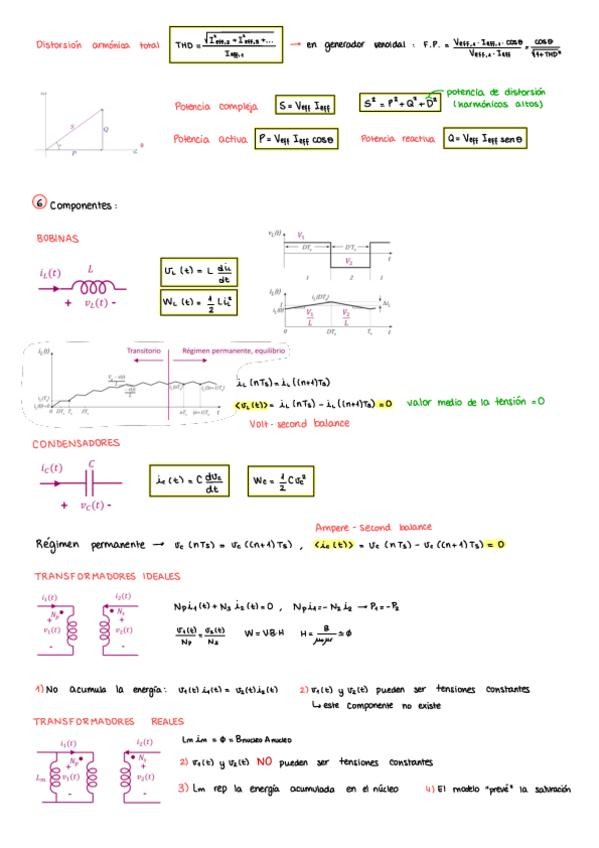 Distorsión armónica total THD = √(I²eff,2 + I²eff,3 + ...) / Ieff,1 → en generador senoidal : F.P. = Veff,1 · Ieff,1 · cosθ / Veff,1 · Ieff = cosθ / √1+THD²
Potencia compleja S = Veff Ieff S² = P² + Q² + D² potencia de distorsión
(harmónicos altos)
S Q P θ
Potencia activa P = Veff Ieff cosθ Potencia reactiva Q = Veff Ieff senθ
6 Componentes :
BOBINAS
iL(t) L
+ vL(t) -
vL(t) = L diL/dt
WL(t) = 1/2 L iL²
vL(t) V1
DTs D'Ts
V2 t
1 2 1
iL(t)
I iL(DTs) ΔiL
iL(0) V1/L V2/L
0 DTs Ts t
Transitorio Régimen permanente, equilibrio
iL(t)
iL(nTs) = iL((n+1)Ts)
<vL(t)> = iL(nTs) - iL((n+1)Ts) = 0 valor medio de la tensión = 0
Volt - second balance
CONDENSADORES
iC(t) C
+ vC(t) -
ic(t) = C dvc/dt
Wc = 1/2 C vc²
Ampere - second balance
Régimen permanente → vc(nTs) = vc((n+1)Ts) , <ic(t)> = vc(nTs) - vc((n+1)Ts) = 0
TRANSFORMADORES IDEALES
i1(t) i2(t)
Np Ns
+ v1(t) - + v2(t) -
Np i1(t) + Ns i2(t) = 0 , Np i1 = - N2 i2 → P1 = - P2
v1(t)/Np = v2(t)/Ns W = VB·H
1) No acumula la energía: v1(t) i1(t) = v2(t) i2(t) 2) v1(t) y v2(t) pueden ser tensiones constantes
↳ este componente no existe
TRANSFORMADORES REALES
i1(t) i2(t)
Np Ns
Lm + v1(t) - + v2(t) -
Lm im = Φ = Bnucleo Anucleo
2) v1(t) y v2(t) NO pueden ser tensiones constantes
3) Lm rep la energía acumulada en el núcleo 4) El modelo "prevé" la saturación